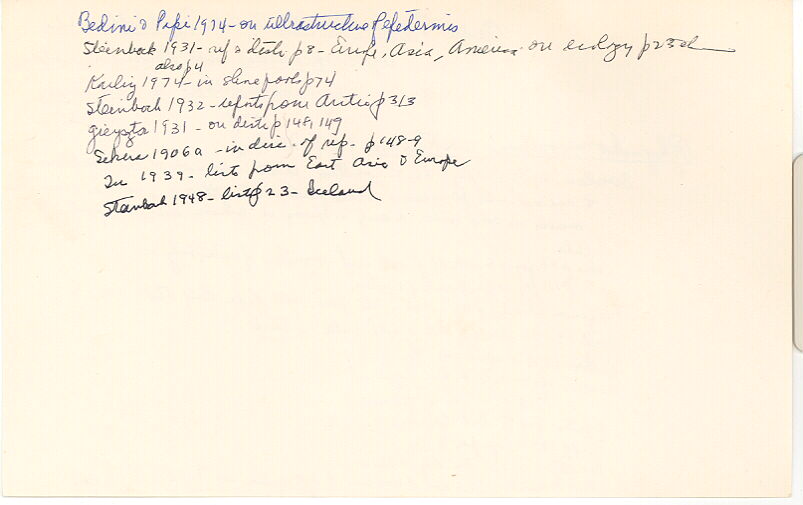 Bedini & Papi 1974 - on ultrastructure of epidermis
Steinbock 1931 - ref & distr p8 - Europe, Asia, America - on ecology p23
also p4
Karling 1974 - in shore pools p74
Steinbock 1932 - reports from Arctic p313
Gieysztor 1931 - on distr p148, 149
Sekera 1906a - in disc. of rep. p148-9
In 1939 - lists from East Asia & Europe
Steinbock 1948 - list p23 - Iceland